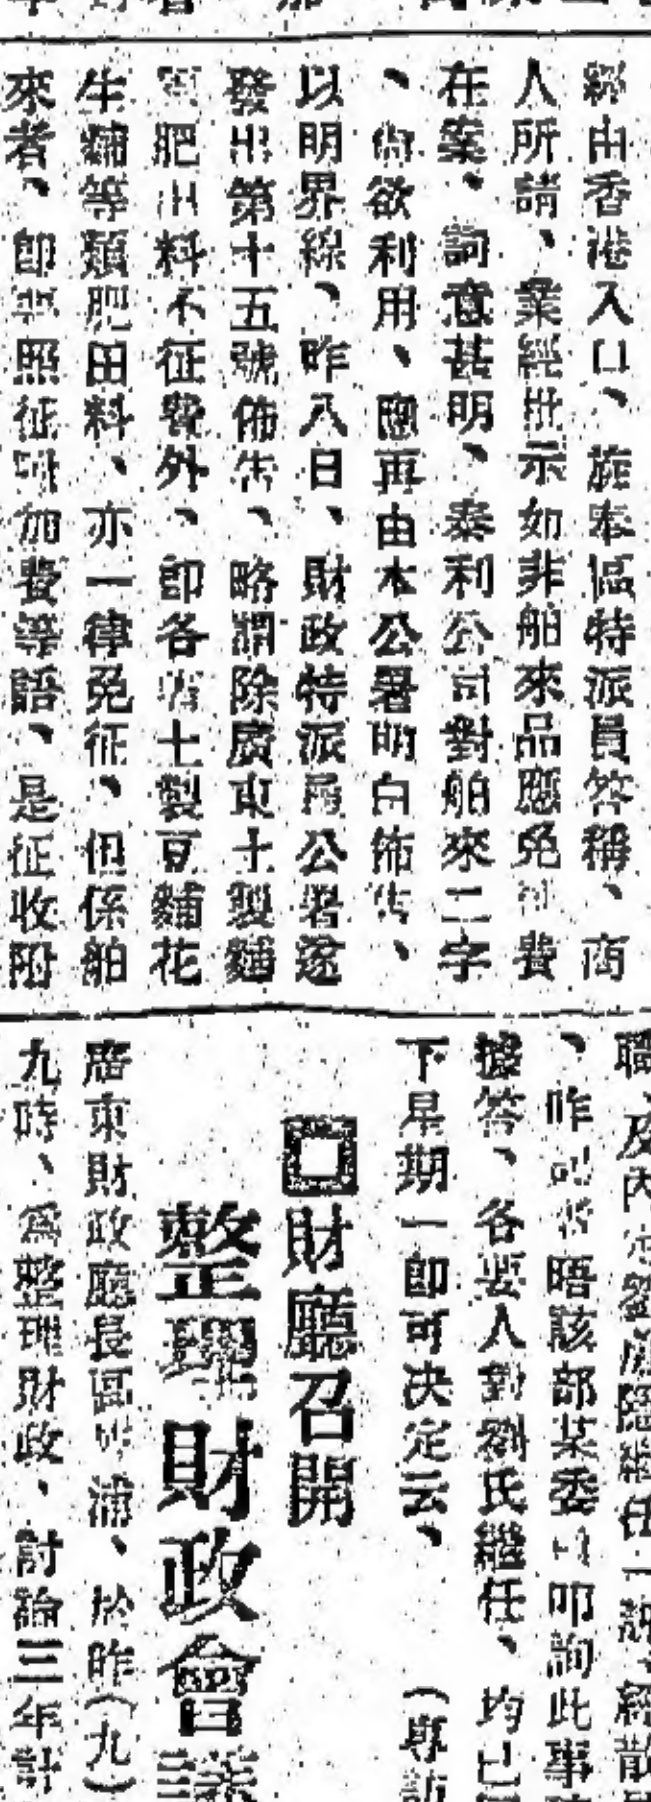 經由香港入口、旋奉區特派員答稱、商
人所請、業經批示如非舶來品應免附費
在案、詞意甚明、泰利公司對舶來二字
、尚欲利用、應再由本公署明白佈告、
以明界線、昨八日、財政特派員公署遂
發出第十五號佈告、略謂除廣東土製麵
肥田料不征費外、即各省土製豆麵花
生麵等類肥田料、亦一律免征、但係舶
來者、即照征附加費等語、是征收附
職、及內劉繼任一說、經散
、昨記者晤該部某委員叩詢此事
據答、各要人對劉氏繼任、均已
下星期一即可决定云、（專訪
財廳召開
整理財政會議
廣東財政廳長區芳浦、於昨（九）
九時、爲整理財政、討論三年計